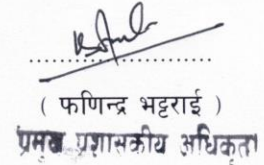 ( फणिन्द्र भट्टराई )
प्रमुख प्रशासकीय अधिकृत